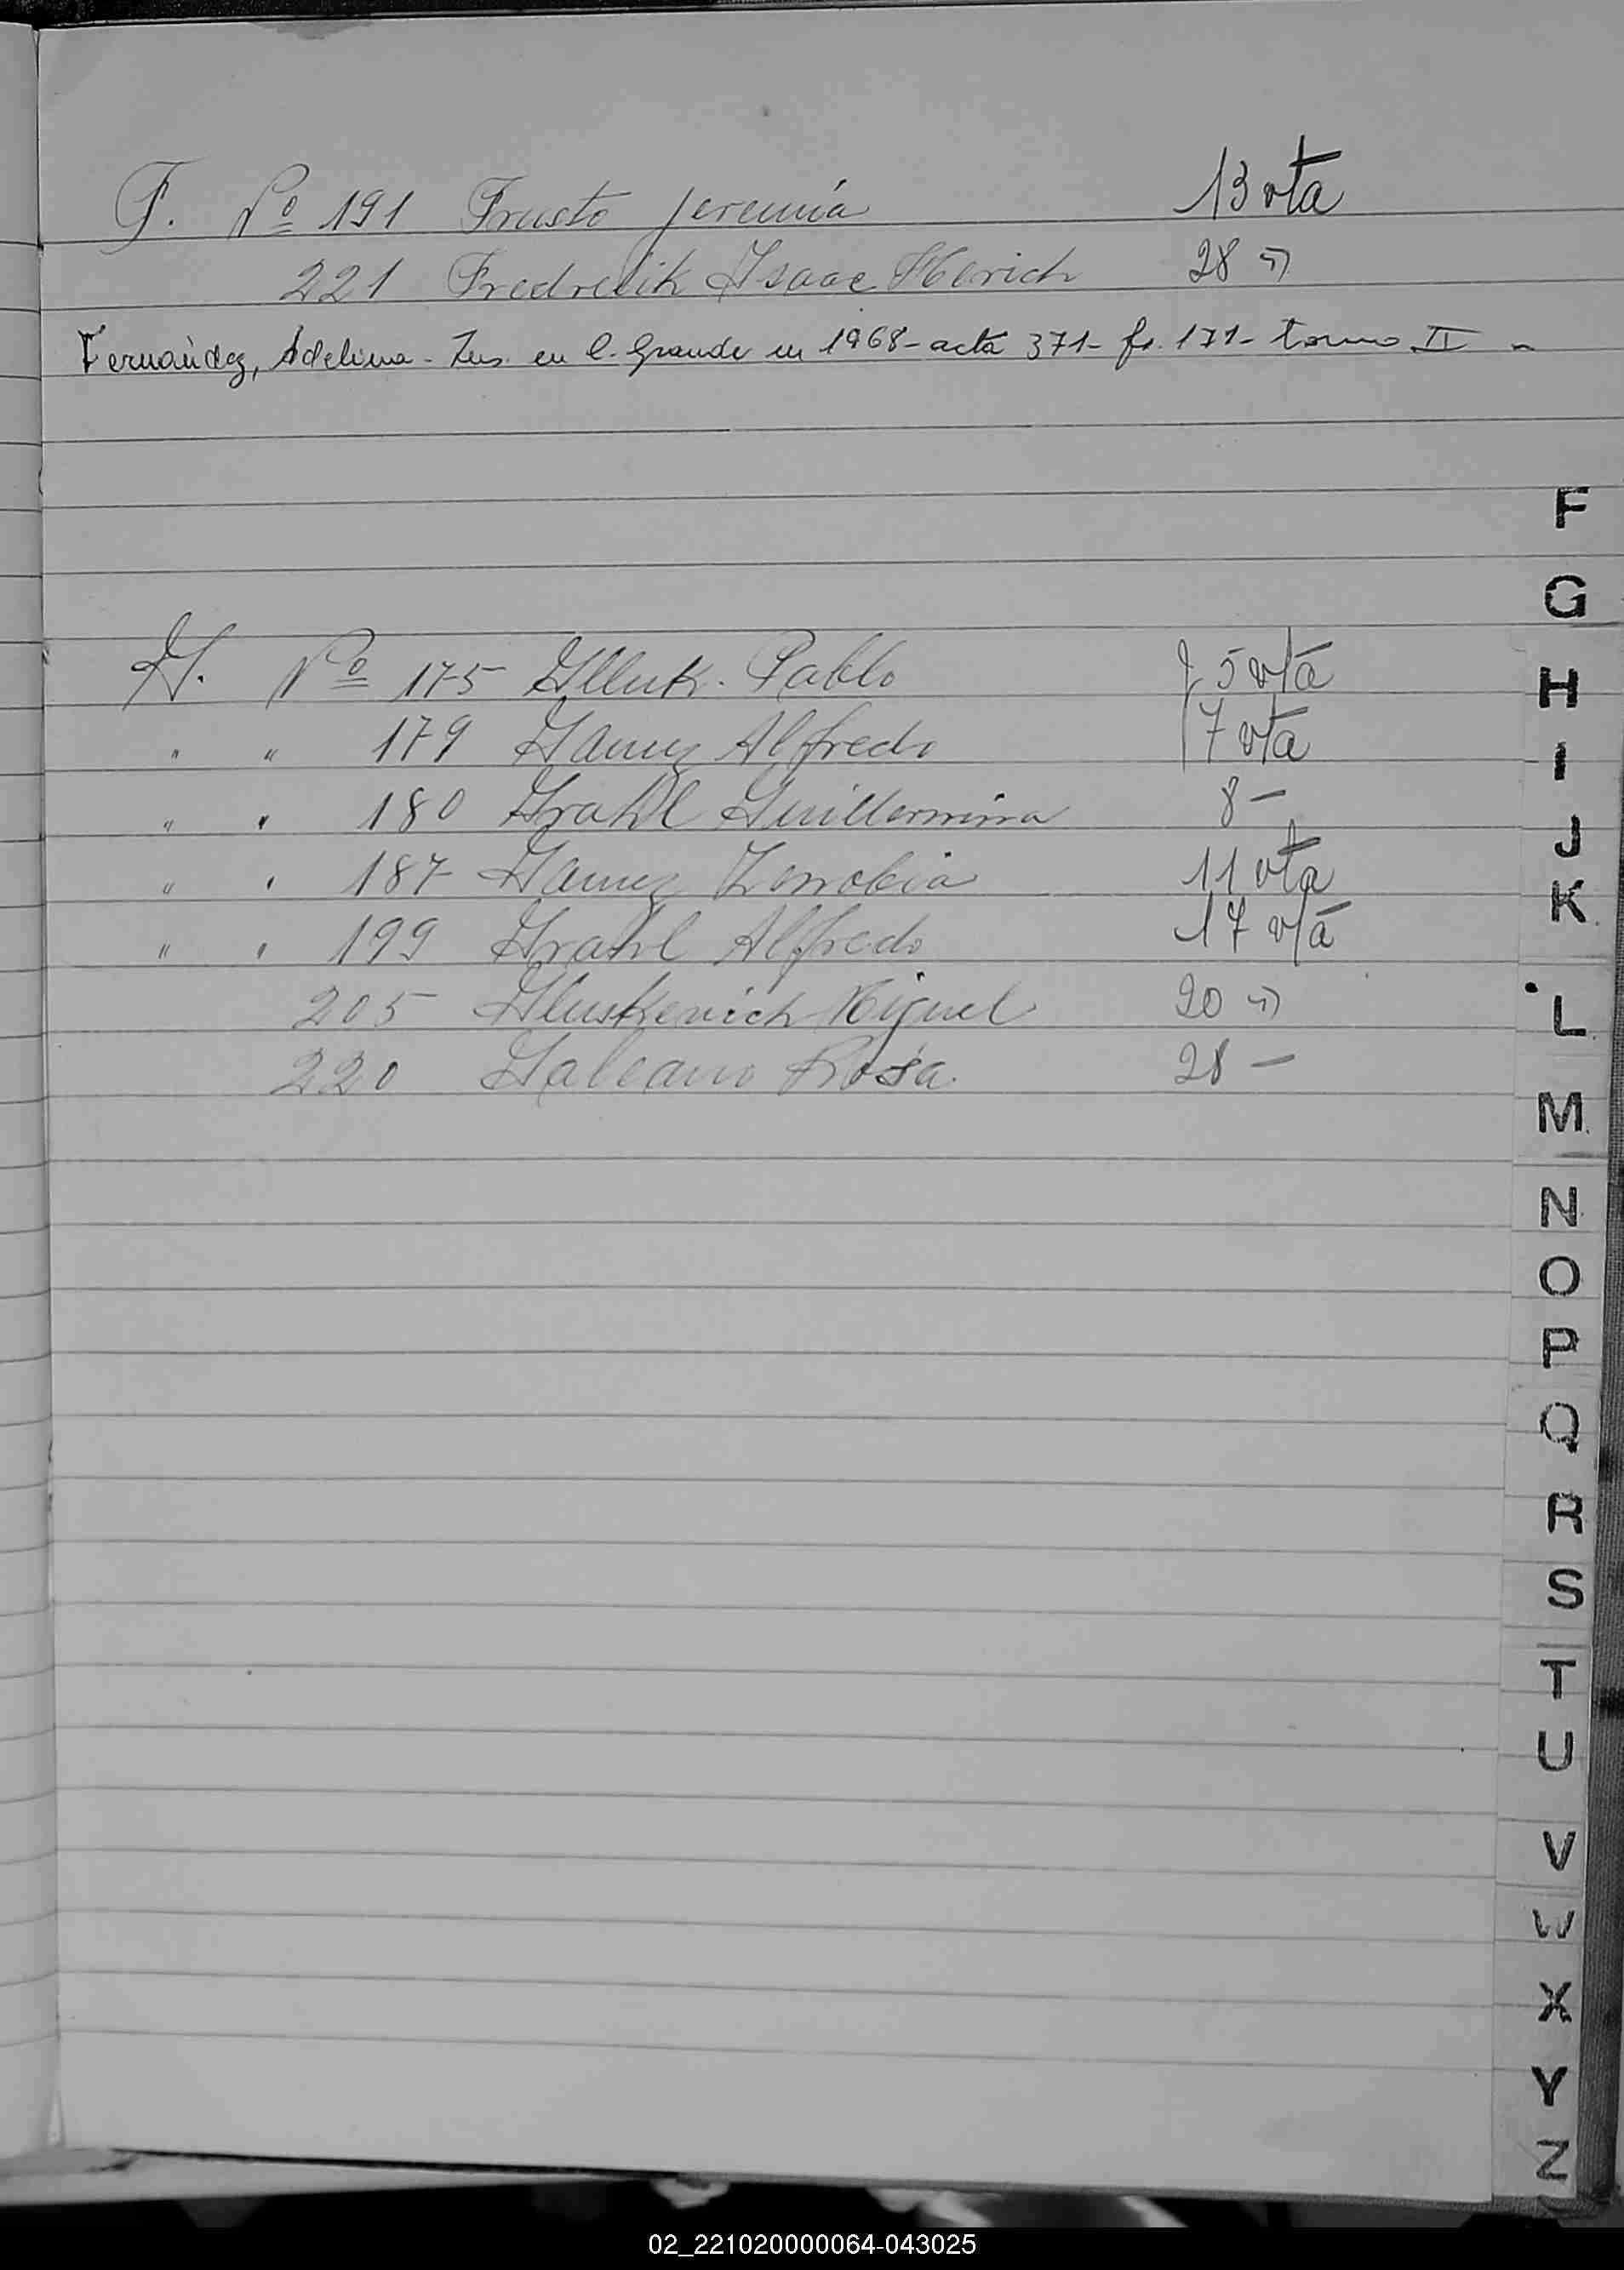 F. Nº 191 Frusto Jeremía 13 vta
221 Fredrelik Isaac Herich 28 "
Fernández, Adelina - Ins. en C. Grande en 1968 - acta 371 - fo. 171 - tomo II -
G. Nº 175 Gluk. Pablo f 5 vta
" " 179 Gamez Alfredo 7 vta
" " 180 Grahl Guillermina 8 -
" " 187 Gamez Zenobia 11 vta
" " 199 Grahl Alfredo 17 vta
205 Gluskevich Miguel 20 "
220 Galeano Rosa. 28 -
F
G
H
I
J
K
L
M
N
O
P
Q
R
S
T
U
V
W
X
Y
Z
02_221020000064-043025